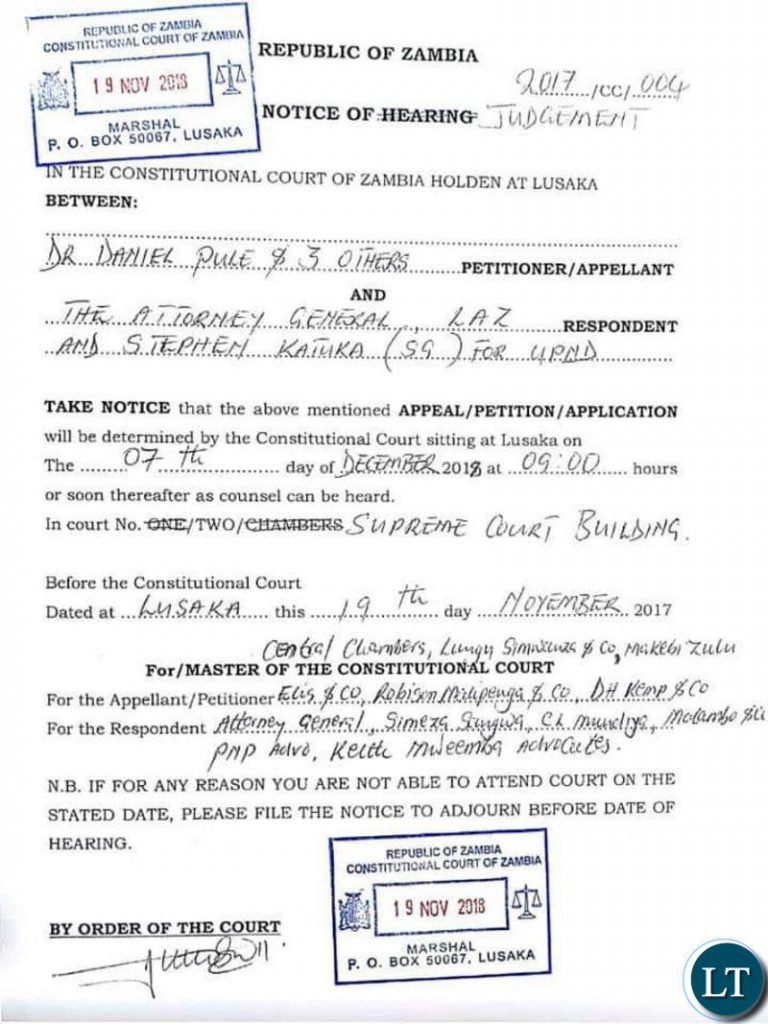 REPUBLIC OF ZAMBIA
CONSTITUTIONAL COURT OF ZAMBIA
19 NOV 2018
MARSHAL
P. O. BOX 50067, LUSAKA
REPUBLIC OF ZAMBIA
2017/CC/004
NOTICE OF HEARING JUDGEMENT
IN THE CONSTITUTIONAL COURT OF ZAMBIA HOLDEN AT LUSAKA
BETWEEN:
DR DANIEL PULE & 3 OTHERS PETITIONER/APPELLANT
AND
THE ATTORNEY GENERAL, LAZ RESPONDENT
AND STEPHEN KATUKA (SG) FOR UPND
TAKE NOTICE that the above mentioned APPEAL/PETITION/APPLICATION
will be determined by the Constitutional Court sitting at Lusaka on
The 07th day of DECEMBER 2018 at 09:00 hours
or soon thereafter as counsel can be heard.
In court No. ONE/TWO/CHAMBERS SUPREME COURT BUILDING.
Before the Constitutional Court
Dated at LUSAKA this 19th day NOVEMBER 2017
Central Chambers, Lungu Simwanza & Co, Makebi Zulu
For/MASTER OF THE CONSTITUTIONAL COURT
For the Appellant/Petitioner Elis & Co, Robison Malipenga & Co, DH Kemp & Co
For the Respondent Attorney General, Simeza Sangwa, Mundiya, Malambo & Co
PNP Advo, Keith Mweemba Advocates.
N.B. IF FOR ANY REASON YOU ARE NOT ABLE TO ATTEND COURT ON THE
STATED DATE, PLEASE FILE THE NOTICE TO ADJOURN BEFORE DATE OF
HEARING.
REPUBLIC OF ZAMBIA
CONSTITUTIONAL COURT OF ZAMBIA
19 NOV 2018
MARSHAL
P. O. BOX 50067, LUSAKA
BY ORDER OF THE COURT
LT